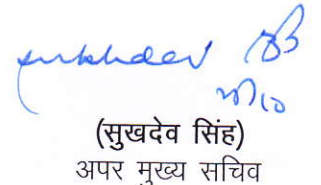 sukhdev
(सुखदेव सिंह)
अपर मुख्य सचिव